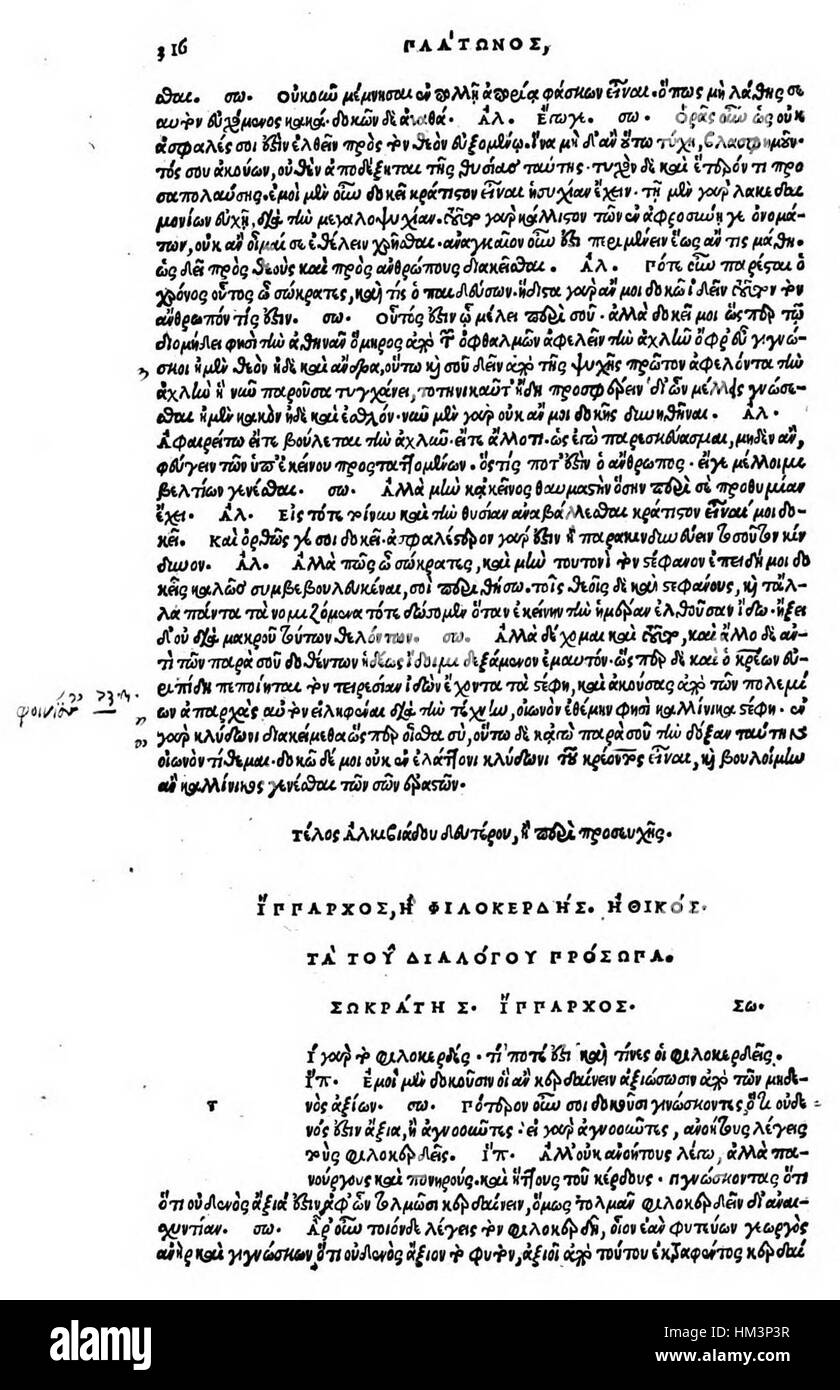 316 ΠΛΑ´ΤΩΝΟΣ,
σθαι. σω. Οὐκοῦν μέμνησαι ἐν πολλῇ ἀπορίᾳ φάσκων εἶναι. ὅπως μὴ λάθῃς σε
αυτὸν εὐχόμενος κακά. δοκῶν δὲ ἀγαθά. Αλ. Εγωγε. σω. Ορᾷς οὖν ὡς οὐκ
ἀσφαλές σοι ἐστὶν ἐλθεῖν πρὸς τὸν θεὸν εὐξομένῳ. ἵνα μὴ δἰ ἂν οὕτω τύχῃ, βλασφημοῦν
τός σου ἀκούων, οὐθὲν ἀποδέξηται τῆς θυσίας ταύτης· τυχὸν δὲ καὶ ἕτερόν τι προ
σαπολαύσῃς. ἐμοὶ μὲν οὖν δοκεῖ κράτιστον εἶναι ἡσυχίαν ἔχειν· τῇ μὲν γὰρ λακεδαι
μονίων εὐχῇ, διὰ τὴν μεγαλοψυχίαν. τοῦτο γὰρ κάλλιστον τῶν ἐν ἀφροσύνῃ γε ὀνομά-
των, οὐκ ἂν οἶμαί σε ἐθέλειν χρῆσθαι. ἀναγκαῖον οὖν ἐστὶ περιμένειν ἕως ἄν τις μάθῃ.
ὡς δεῖ πρὸς θεοὺς καὶ πρὸς ἀνθρώπους διακεῖσθαι. Αλ. Πότε οὖν παρέσται ὁ
χρόνος οὗτος ὦ σώκρατες, καὶ τίς ὁ παιδεύσων. ἥδιστα γὰρ ἄν μοι δοκῶ ἰδεῖν τοῦτον τὸν
ἄνθρωπον τίς ἐστιν. σω. Οὗτός ἐστιν ᾧ μέλει περὶ σοῦ· ἀλλὰ δοκεῖ μοι ὥσπερ τῷ
διομήδει φησὶ τὴν ἀθηνᾶν ὅμηρος ἀπὸ τῶν ὀφθαλμῶν ἀφελεῖν τὴν ἀχλὺν ὄφρ' εὖ γιγνώ-
σκοι ἠμὲν θεὸν ἠδὲ καὶ ἄνδρα, οὕτω κỳ σοῦ δεῖν ἀπὸ τῆς ψυχῆς πρῶτον ἀφελόντα τὴν
ἀχλὺν ἣ νῦν παροῦσα τυγχάνει, τοτηνικαῦτ' ἤδη προσφέρειν δἰ ὧν μέλλεις γνώσε-
σθαι ἠμὲν κακὸν ἠδὲ καὶ ἐσθλόν· νῦν μὲν γὰρ οὐκ ἄν μοι δοκῇς δυνηθῆναι. Αλ.
Αφαιρείτω εἴτε βούλεται τὴν ἀχλὺν· εἴτε ἄλλο τι· ὡς ἐγὼ παρεσκεύασμαι, μηδὲν ἂν,
φεύγειν τῶν ὑπ' ἐκείνου προσταττομένων. ὅστίς ποτ' ἐστὶν ὁ ἄνθρωπος· εἴγε μέλλοιμι
βελτίων γενέσθαι. σω. Αλλὰ μὴν κἀκεῖνος θαυμαστὴν ὅσην περὶ σὲ προθυμίαν
ἔχει. Αλ. Εἰς τότε τοίνυν καὶ τὴν θυσίαν ἀναβάλλεσθαι κράτιστον εἶναί μοι δο-
κεῖ. Καὶ ὀρθῶς γέ σοι δοκεῖ· ἀσφαλέστερον γάρ ἐστιν ἢ παρακινδυνεύειν τοσοῦτον κίν
δυνον. Αλ. Αλλὰ πῶς ὦ σώκρατες, καὶ μὴν τουτονὶ τὸν στέφανον ἐπειδή μοι δο
κεῖς καλῶς συμβεβουλευκέναι, σοὶ περιθήσω. τοῖς θεοῖς δὲ καὶ στεφάνους, κỳ τἄλ-
λα πάντα τὰ νομιζόμενα τότε δώσομεν ὅταν ἐκείνην τὴν ἡμέραν ἐλθοῦσαν ἴδω. ἥξει
δ' οὐ διὰ μακροῦ τούτων θελόντων. σω. Αλλὰ δέχομαι καὶ τοῦτο, καὶ ἄλλο δὲ ἄν
τὶ τῶν παρὰ σοῦ δοθέντων ἡδέως ἴδοιμι δεξάμενον ἐμαυτόν. ὥσπερ δὲ καὶ ὁ κρέων εὐ-
ριπίδῃ πεποίηται τὸν τειρεσίαν ἰδὼν ἔχοντα τὰ στέφη, καὶ ἀκούσας ἀπὸ τῶν πολεμί
ων ἀπαρχὰς αὐτὸν εἰληφέναι διὰ τὴν τέχνην, οἰωνὸν ἐθέμην φησὶ καλλίνικα στέφη. ἐν
γὰρ κλύδωνι διακείμεθα ὥσπερ οἶσθα σὺ, οὕτω δὲ κἀγὼ παρὰ σοῦ τὴν δόξαν ταύτην
οἰωνὸν τίθεμαι. δοκῶ δέ μοι οὐκ ἐν ἐλάττονι κλύδωνι τοῦ κρέοντος εἶναι, κỳ βουλοίμην
ἂν καλλίνικος γενέσθαι τῶν σῶν ἐραστῶν.
Τέλος Αλκιβιάδου δευτέρου, ἢ περὶ προσευχῆς.
ἽΠΠΑΡΧΟΣ, Ἢ ΦΙΛΟΚΕΡΔΉΣ. ἨΘΙΚΌΣ.
ΤᾺ ΤΟΥ͂ ΔΙΑΛΌΓΟΥ ΠΡΌΣΩΠΑ.
ΣΩΚΡΆΤΗΣ. ἽΠΠΑΡΧΟΣ. Σω.
Τ
Ι γὰρ τὸ φιλοκερδές. τί ποτέ ἐστι καὶ τίνες οἱ φιλοκερδεῖς.
Ιπ. Εμοὶ μὲν δοκοῦσιν οἳ ἂν κερδαίνειν ἀξιώσωσιν ἀπὸ τῶν μηδε
νὸς ἀξίων. σω. Πότερον οὖν σοι δοκοῦσι γινώσκοντες ὅτι οὐδε
νός ἐστιν ἄξια, ἢ ἀγνοοῦντες· εἰ γὰρ ἀγνοοῦντες, ἀνοήτους λέγεις
τοὺς φιλοκερδεῖς. Ιπ. Αλλ' οὐκ ἀνοήτους λέγω, ἀλλὰ πα-
νούργους καὶ πονηροὺς. καὶ ἥττους τοῦ κέρδους. γιγνώσκοντας ὅτι
ὅτι οὐδενὸς ἄξιά ἐστιν, ἀφ' ὧν τολμῶσι κερδαίνειν, ὅμως τολμᾶν φιλοκερδεῖν δἰ ἀναι-
σχυντίαν. σω. Αρ' οὖν τοιόνδε λέγεις τὸν φιλοκερδῆ, οἷον ἐὰν φυτεύων γεωργὸς
ἀνὴρ καὶ γιγνώσκων, ὅτι οὐδενὸς ἄξιον τὸ φυτὸν, ἀξιοῖ ἀπὸ τούτου ἐκτραφέντος κερδαί
alamy
HM3P3R
www.alamy.com